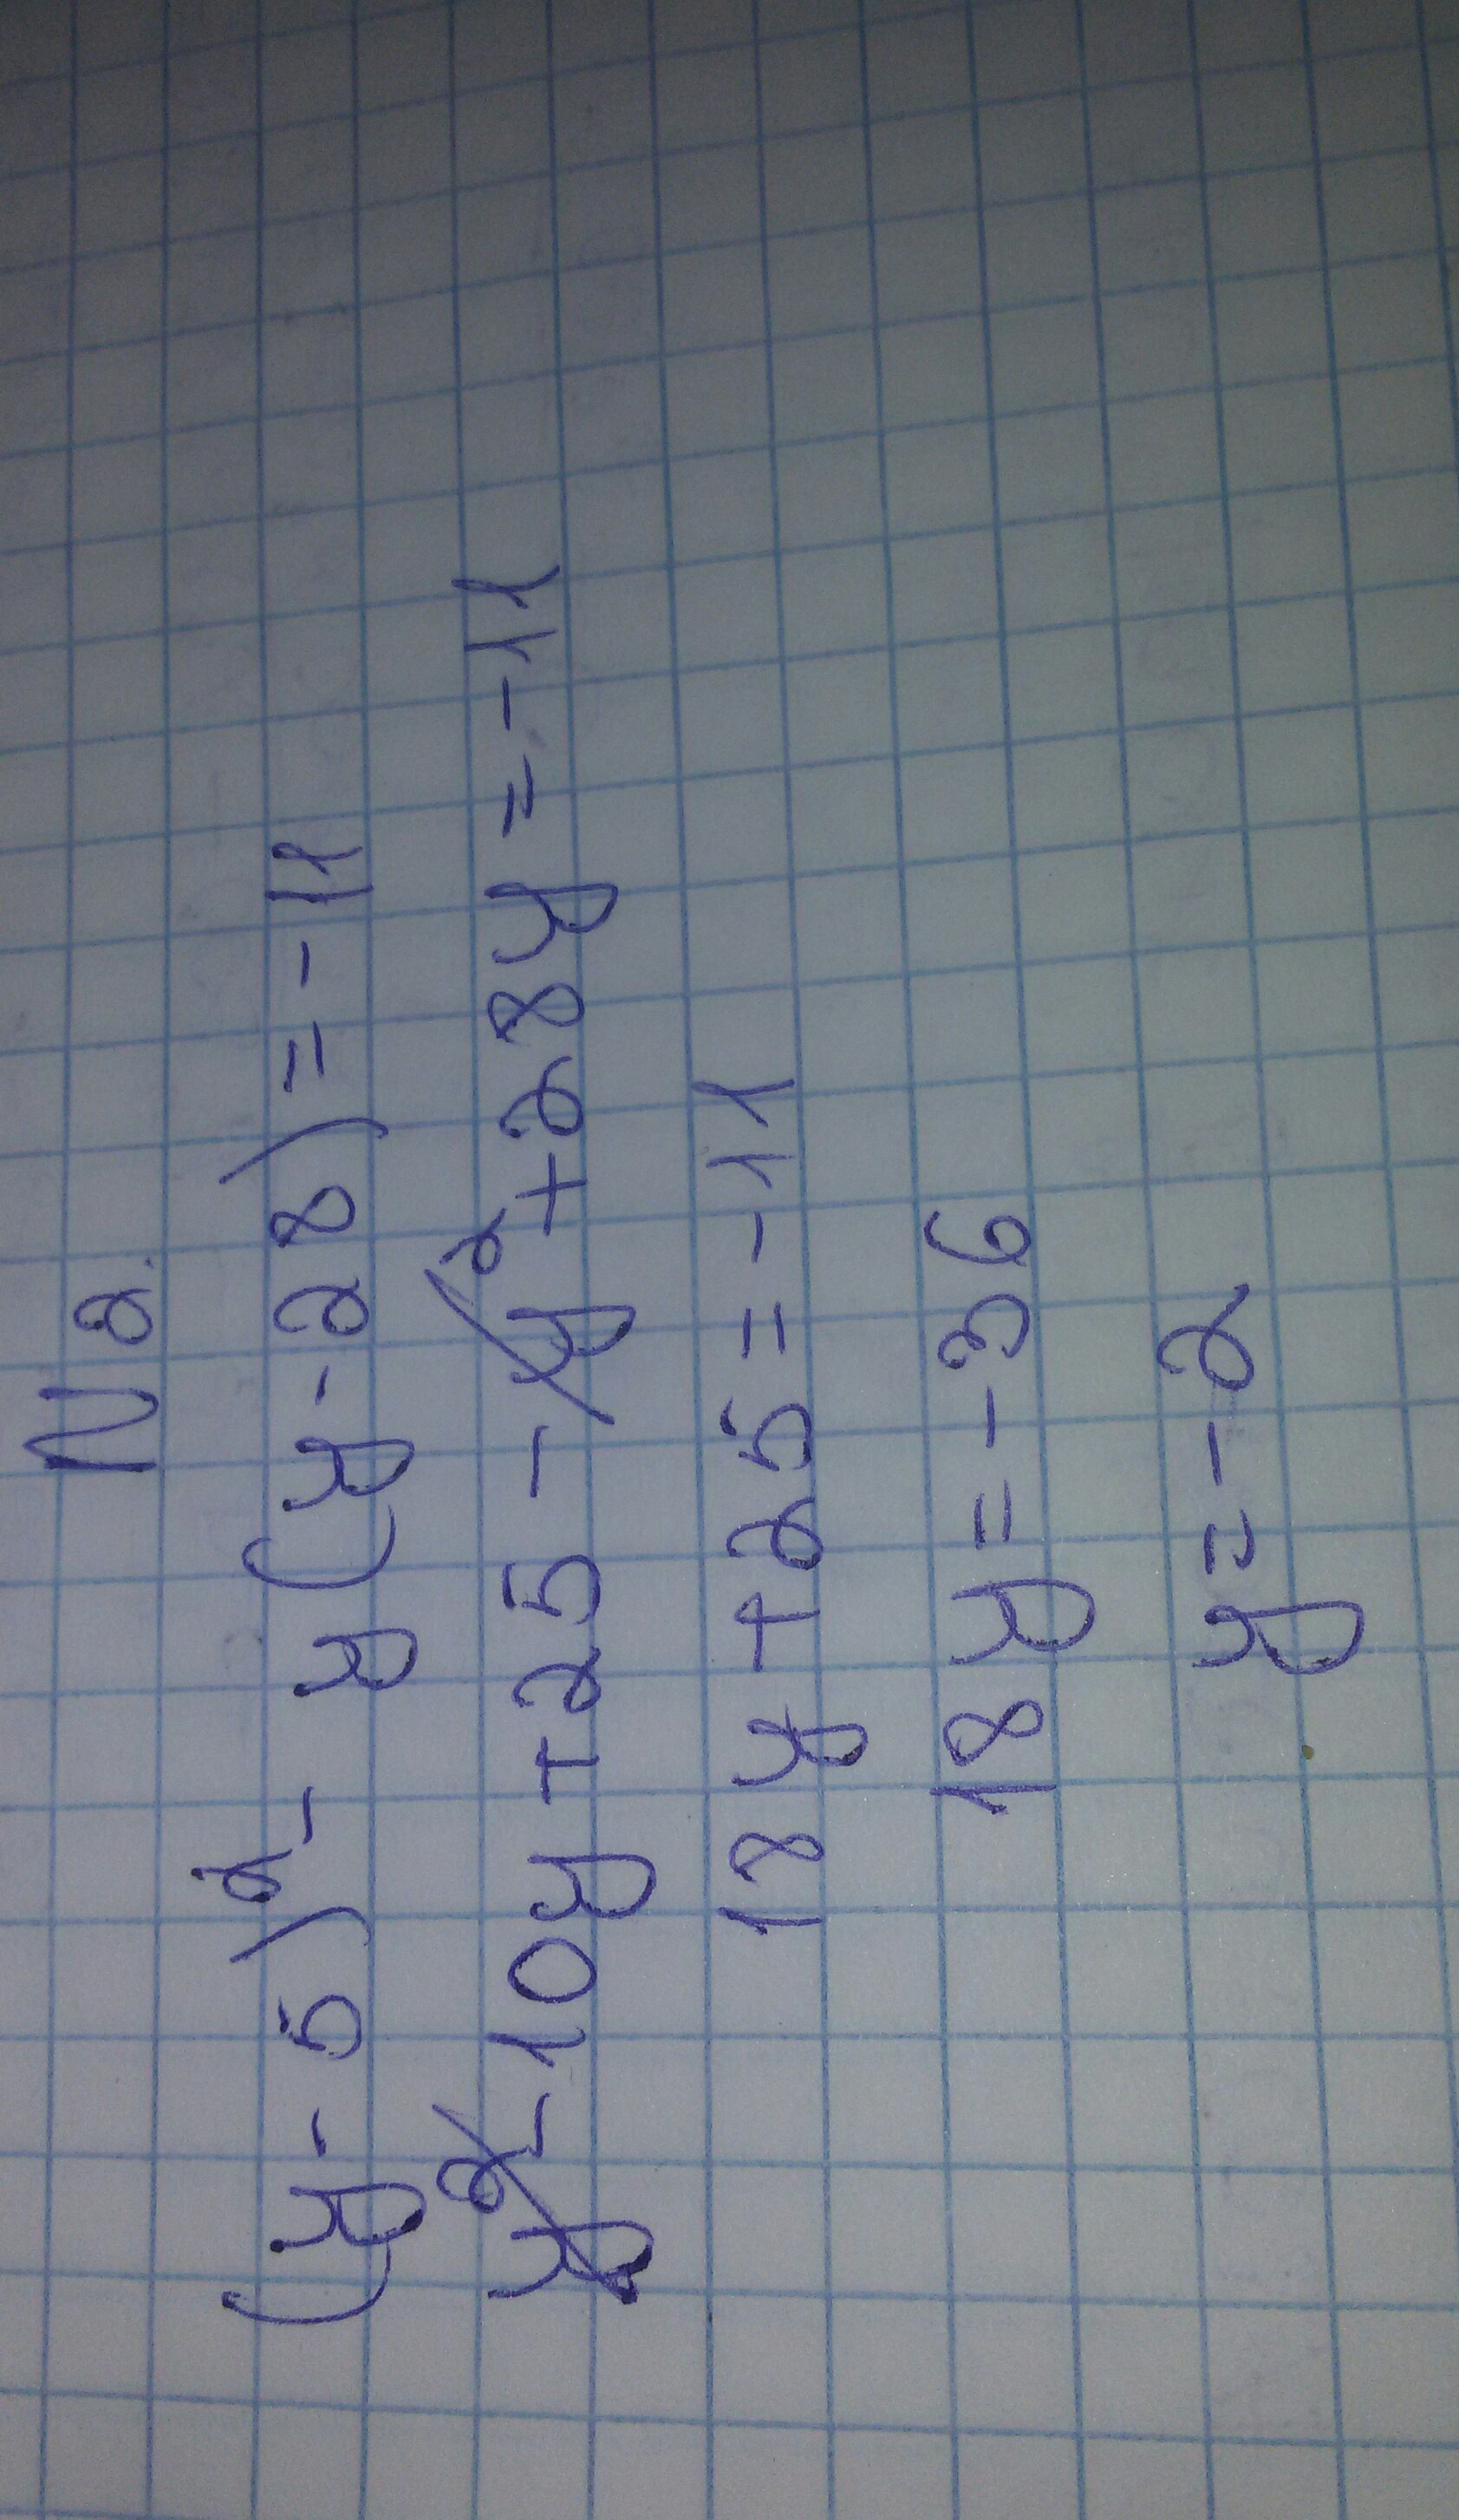 N 2.
(y-5)² - y(y-28) = -11
y² - 10y + 25 - y² + 28y = -11
18y + 25 = -11
18y = -36
y = -2